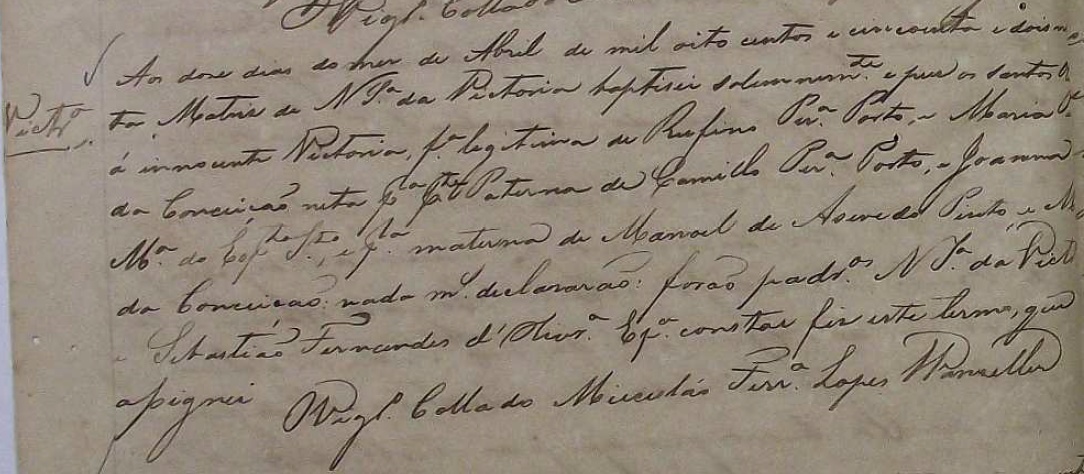 Vig.º Collado
Aos doze dias do mez de Abril de mil oito centos e cincoenta e dois n
Victr.ª
ta Matriz de N Sr.ª da Victoria baptisei solemnem.te e puz os santos O
á innocente Victoria, f.ª legitima de Rufino Per.ª Porto, e Maria
da Conceição neta p.la p.te Paterna de Camillo Per.ª Porto, e Joanna
M.ª do Esp.to S.to, e p.la materna de Manoel de Asevedo Pinto e M
da Conceição: nada m.s declararão: forão padr.os N Sr.ª da Vict
e Sebastião Fernandes d'Oliv.ª E p.ª constar fiz este termo, que
assignei
Vig.º Collado Miceslão Ferr.ª Lopes Wanzeller